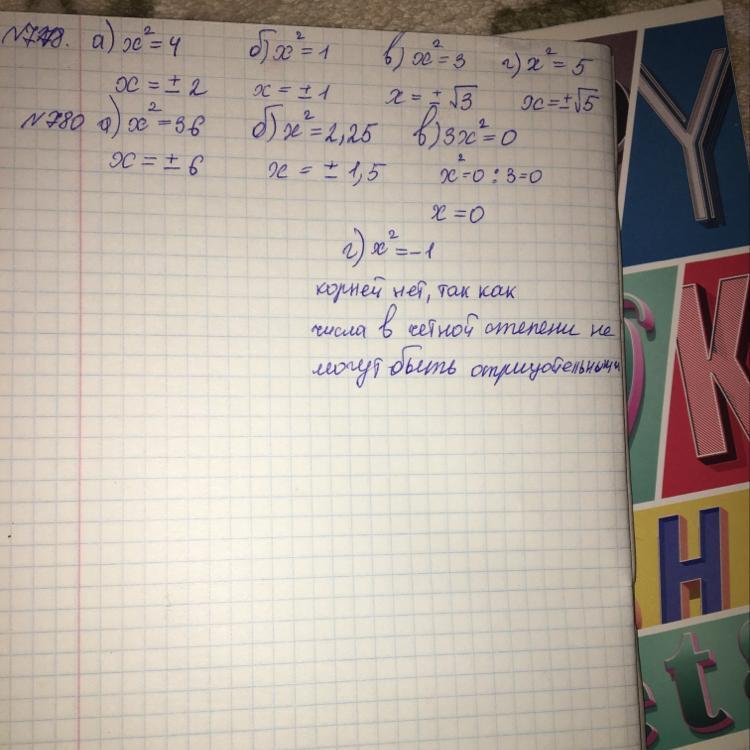 №778. а) x²=4 б) x²=1 в) x²=3 г) x²=5
x=±2 x=±1 x=±√3 x=±√5
№780 а) x²=36 б) x²=2,25 в) 3x²=0
x=±6 x=±1,5 x²=0:3=0
x=0
г) x²=-1
корней нет, так как
числа в четной степени не
могут быть отрицательными
Y
K
H
ets